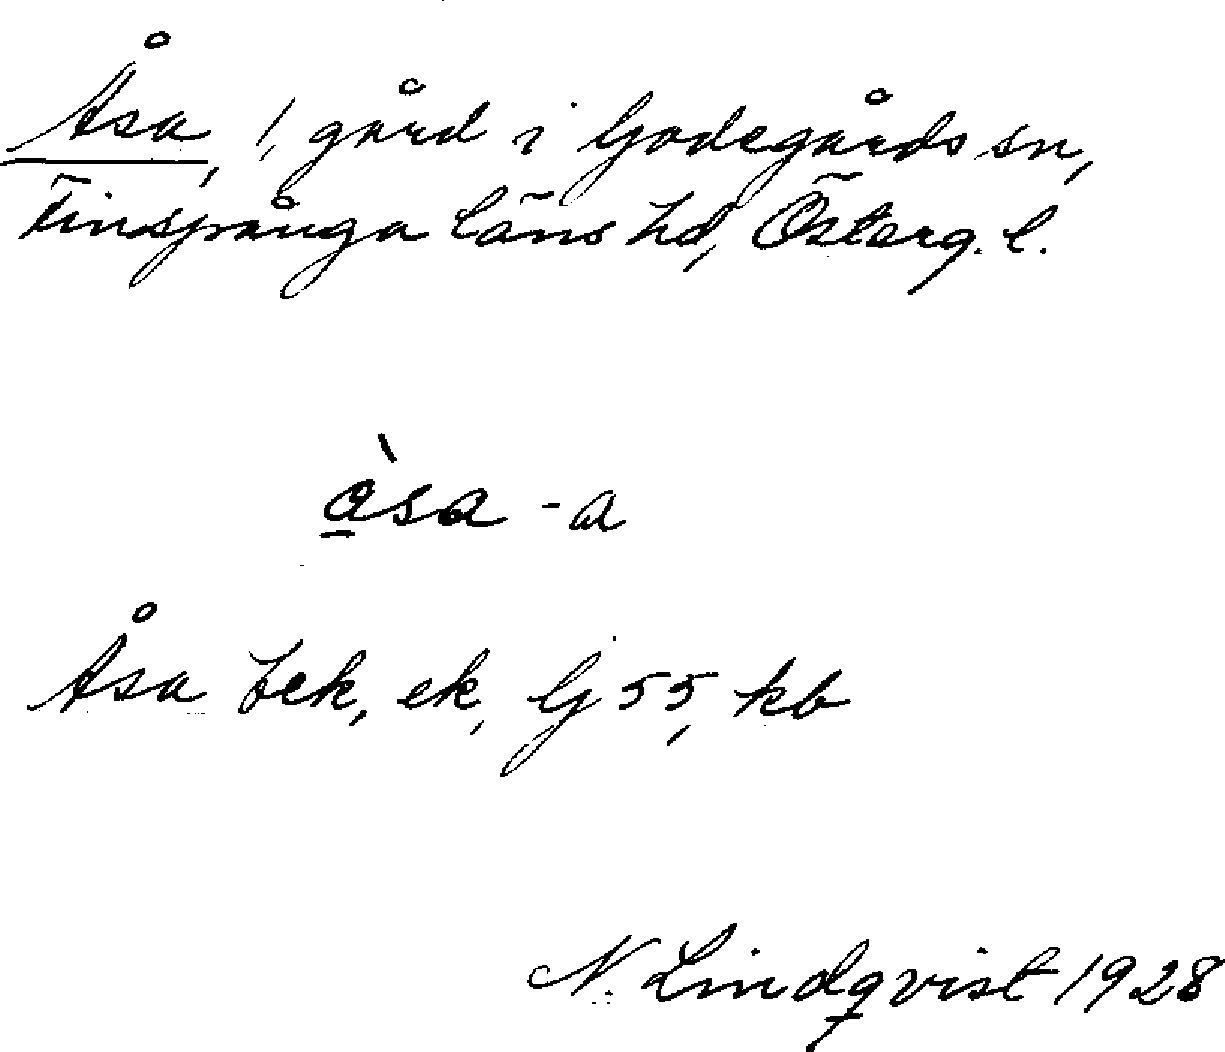 Åsa, 1, gård i Godegårds sn,
Finspånga läns hd, Österg. l.
åsa̠ -a
Åsa Jek, ek, Gj 55, kb
N. Lindqvist 1928